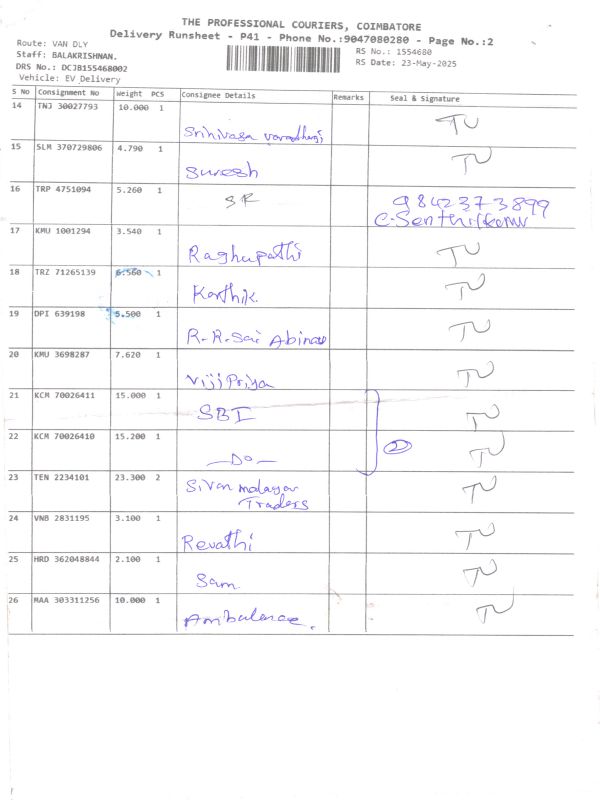 THE PROFESSIONAL COURIERS, COIMBATORE
Delivery Runsheet - P41 - Phone No.:9047080280 - Page No.:2
Route: VAN DLY
Staff: BALAKRISHNAN.
DRS No.: DCJB155468002
Vehicle: EV_Delivery
RS No.: 1554680
RS Date: 23-May-2025
S No Consignment No Weight PCS Consignee Details Remarks Seal & Signature
14 TNJ 30027793 10.000 1
15 SLM 370729806 4.790 1 Suresh
16 TRP 4751094 5.260 1 SR 9842373899
17 KMU 1001294 3.540 1 Raghupathi
18 TRZ 71265139 6.560 1 Karthik.
19 DPI 639198 5.500 1 R.R.Sai Abinav
20 KMU 3698287 7.620 1 Viji Priya
21 KCM 70026411 15.000 1 SBI
22 KCM 70026410 15.200 1 —Do— 2
23 TEN 2234101 23.300 2 Sivan malayan
Traders
24 VNB 2831195 3.100 1 Revathi
25 HRD 362048844 2.100 1 Sam
26 MAA 303311256 10.000 1 Ambulance.